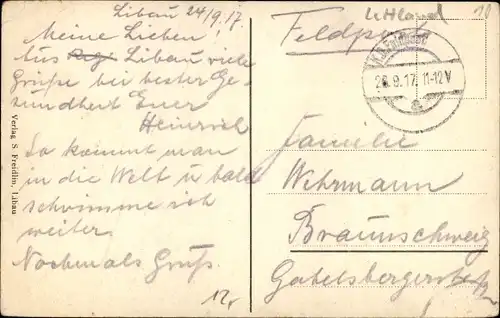 Libau 24/9.17.
Meine Lieben!
Aus Libau viele
Grüße bei bester Ge-
sundheit Euer
Heinrich
So kommt man
in die Welt u bald
schwimme ich
weiter.
Nochmals Gruß.
Verlag S. Freidlin, Libau
Feldpost
K.D. Feldpost
26.9.17. 11-12V
a
Familie
Wehrmann
Braunschweig
Gabelsbergerstr.